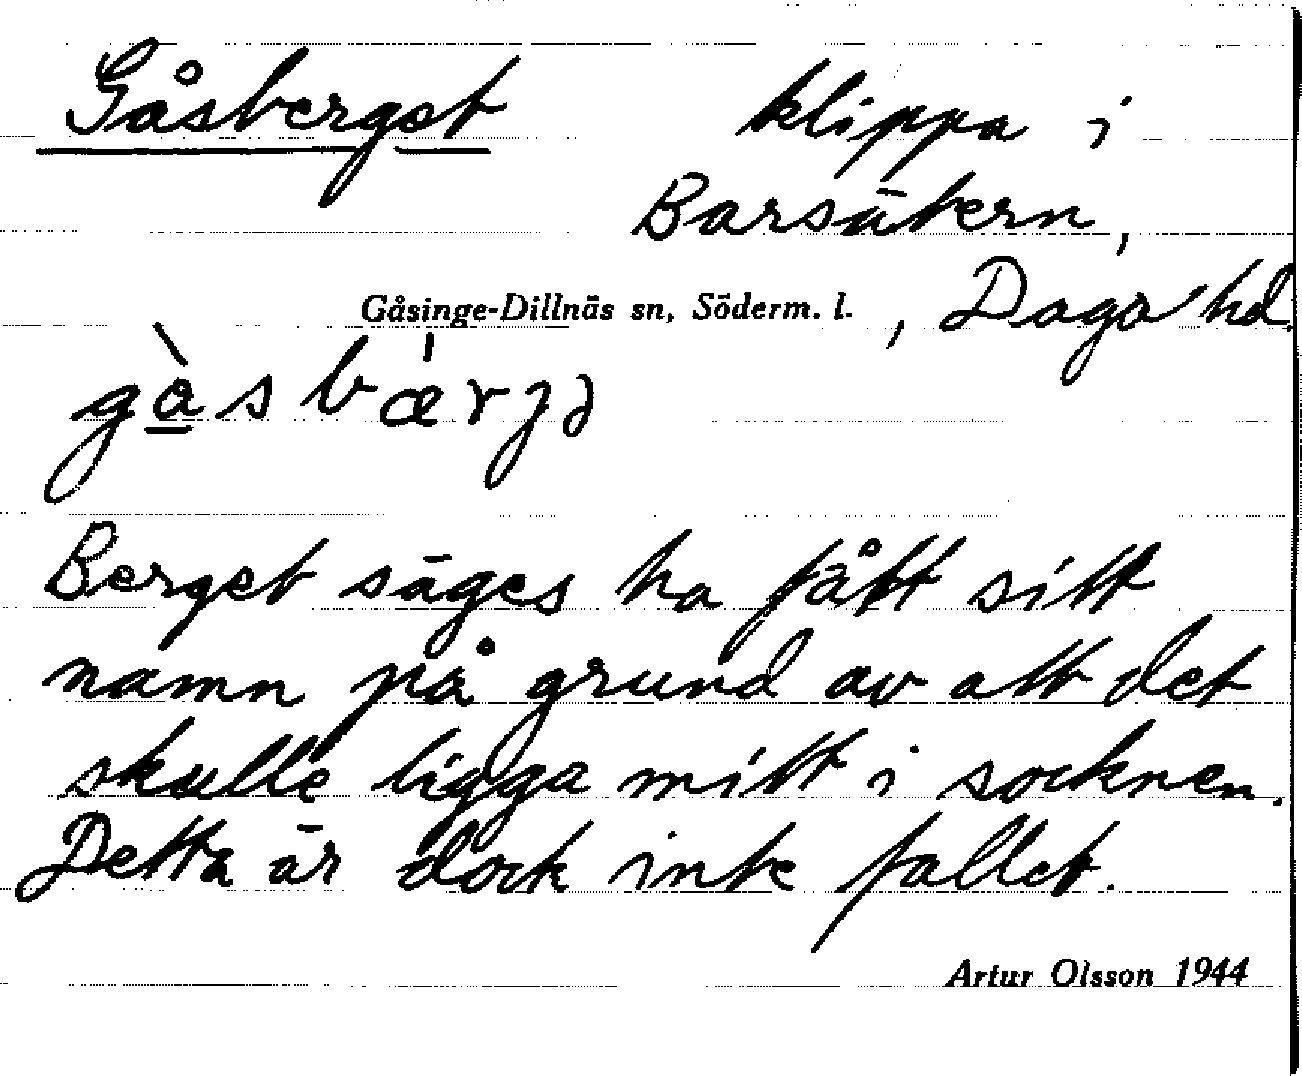 Gåsberget klippa i
Barsätern,
Gåsinge-Dillnäs sn, Söderm. l. , Daga hd.
Berget säges ha fått sitt
namn på grund av att det
skulle ligga mitt i socknen.
Detta är dock inte fallet.
Artur Olsson 1944